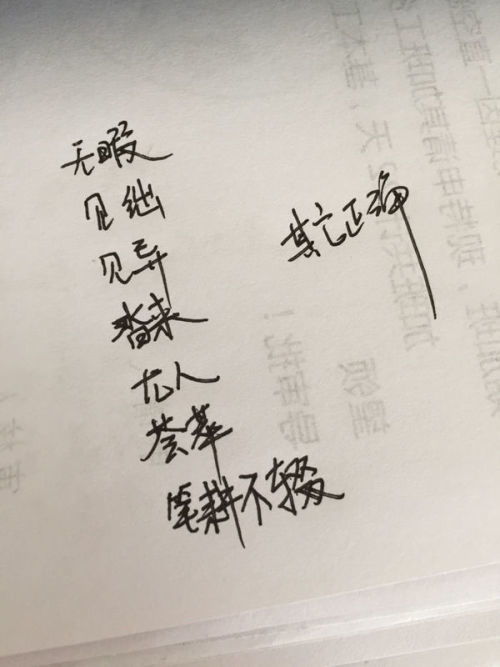 无暇
见绌
见异
沓来
尤人
荟萃
笔耕不辍
其它正确